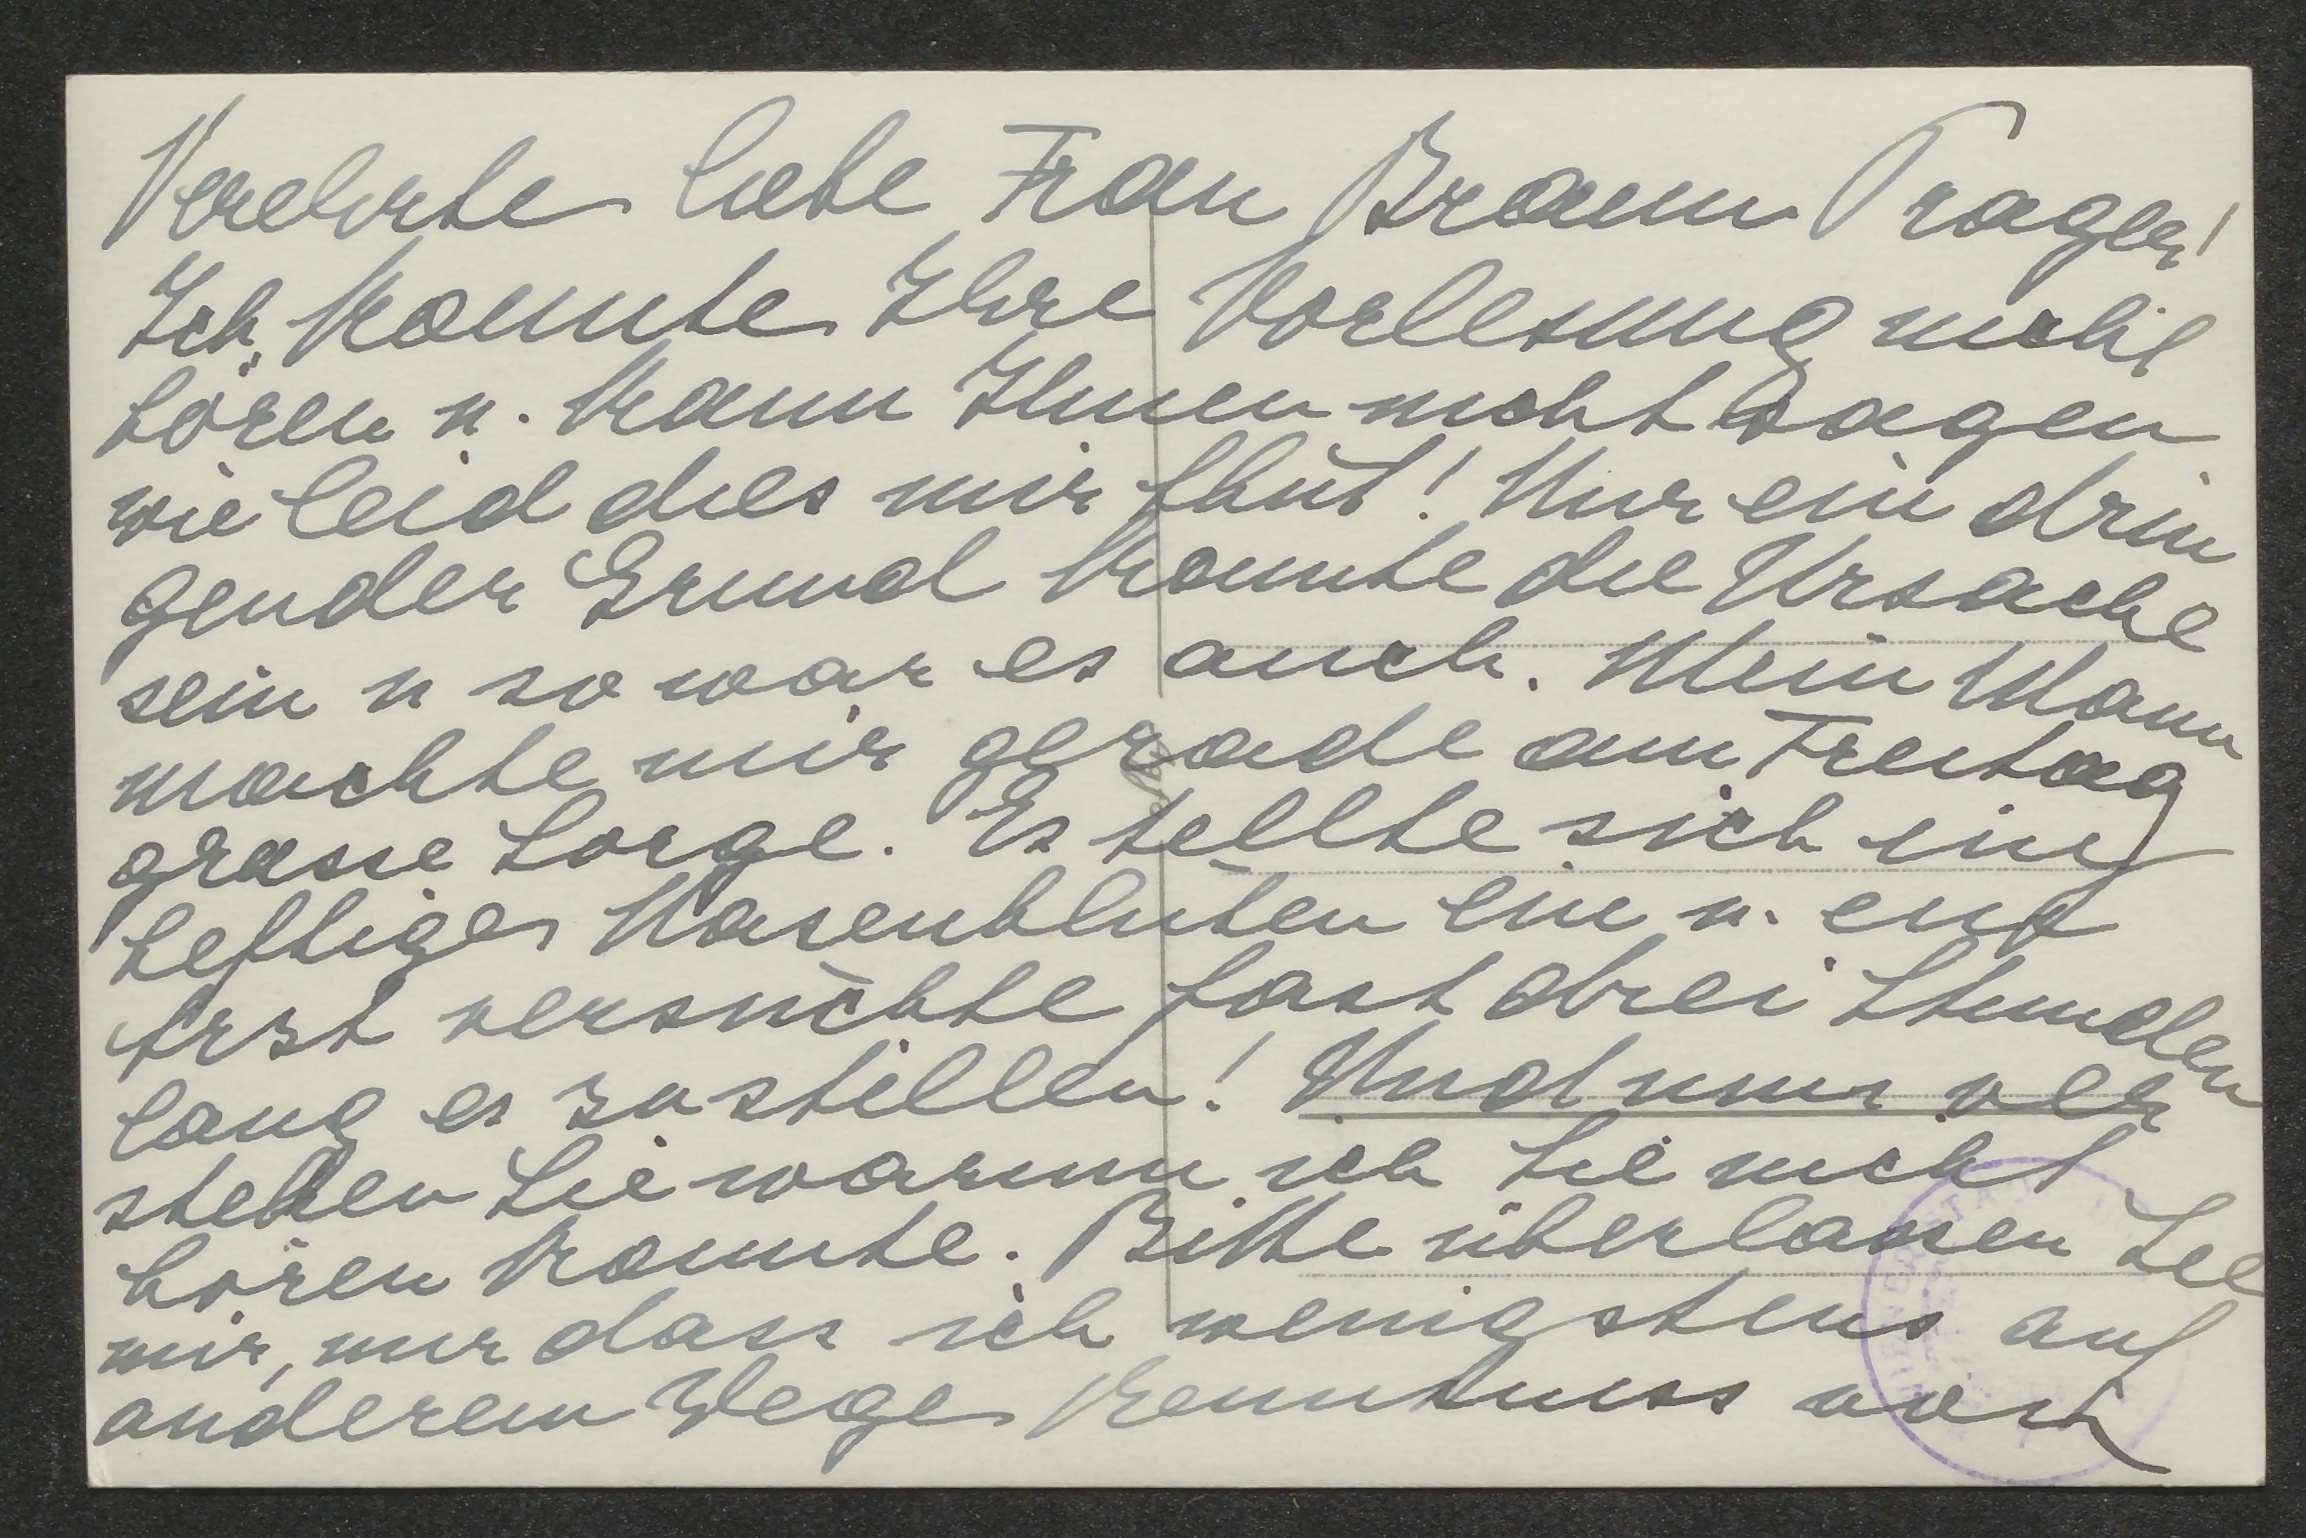 Verehrte liebe Frau Braun Prager!
Ich konnte Ihre Vorlesung nicht
hören u. kann Ihnen nicht sagen
wie leid dies mir thut! Nur ein drin
gender Grund konnte die Ursache
sein u so war es auch. Mein Mann
machte mir gerade am Freitag
grosse Sorge. Es stellte sich ein
heftiges Nasenbluten ein u. ein
Arzt versuchte fast drei Stunden
lang es zu stillen! Und nun ver
stehen Sie warum ich Sie nicht
hören konnte. Bitte überlassen Sie
mir, nur dass ich wenigstens auf
anderem Wege Kenntniss von